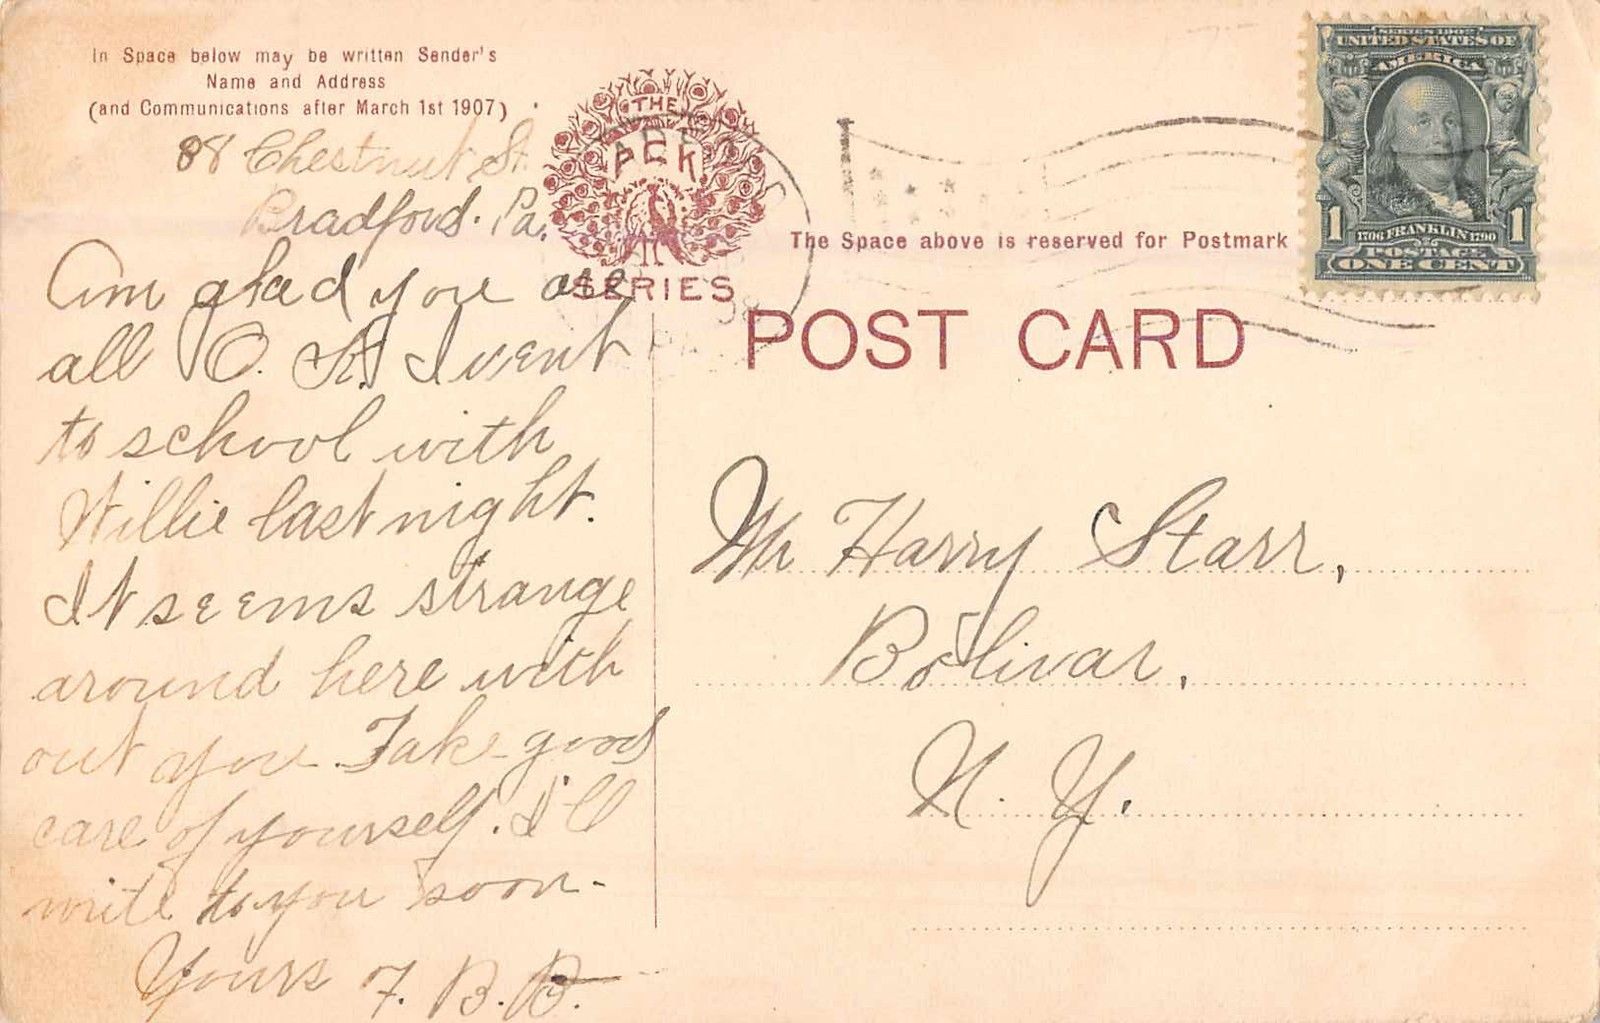 In Space below may be written Sender's
Name and Address
(and Communications after March 1st 1907)
88 Chestnut St.
Bradford. Pa.
Am glad you are
all O. K. I went
to school with
Willie last night.
It seems strange
around here with
out you. Take good
care of yourself. I'll
write to you soon-
Yours F. B. B.
THE
PCK
SERIES
The Space above is reserved for Postmark
POST CARD
SERIES 1902
UNITED STATES OF
AMERICA
1 1
1706 FRANKLIN 1790
POSTAGE
ONE CENT
Mr Harry Starr,
Bolivar,
N. Y.